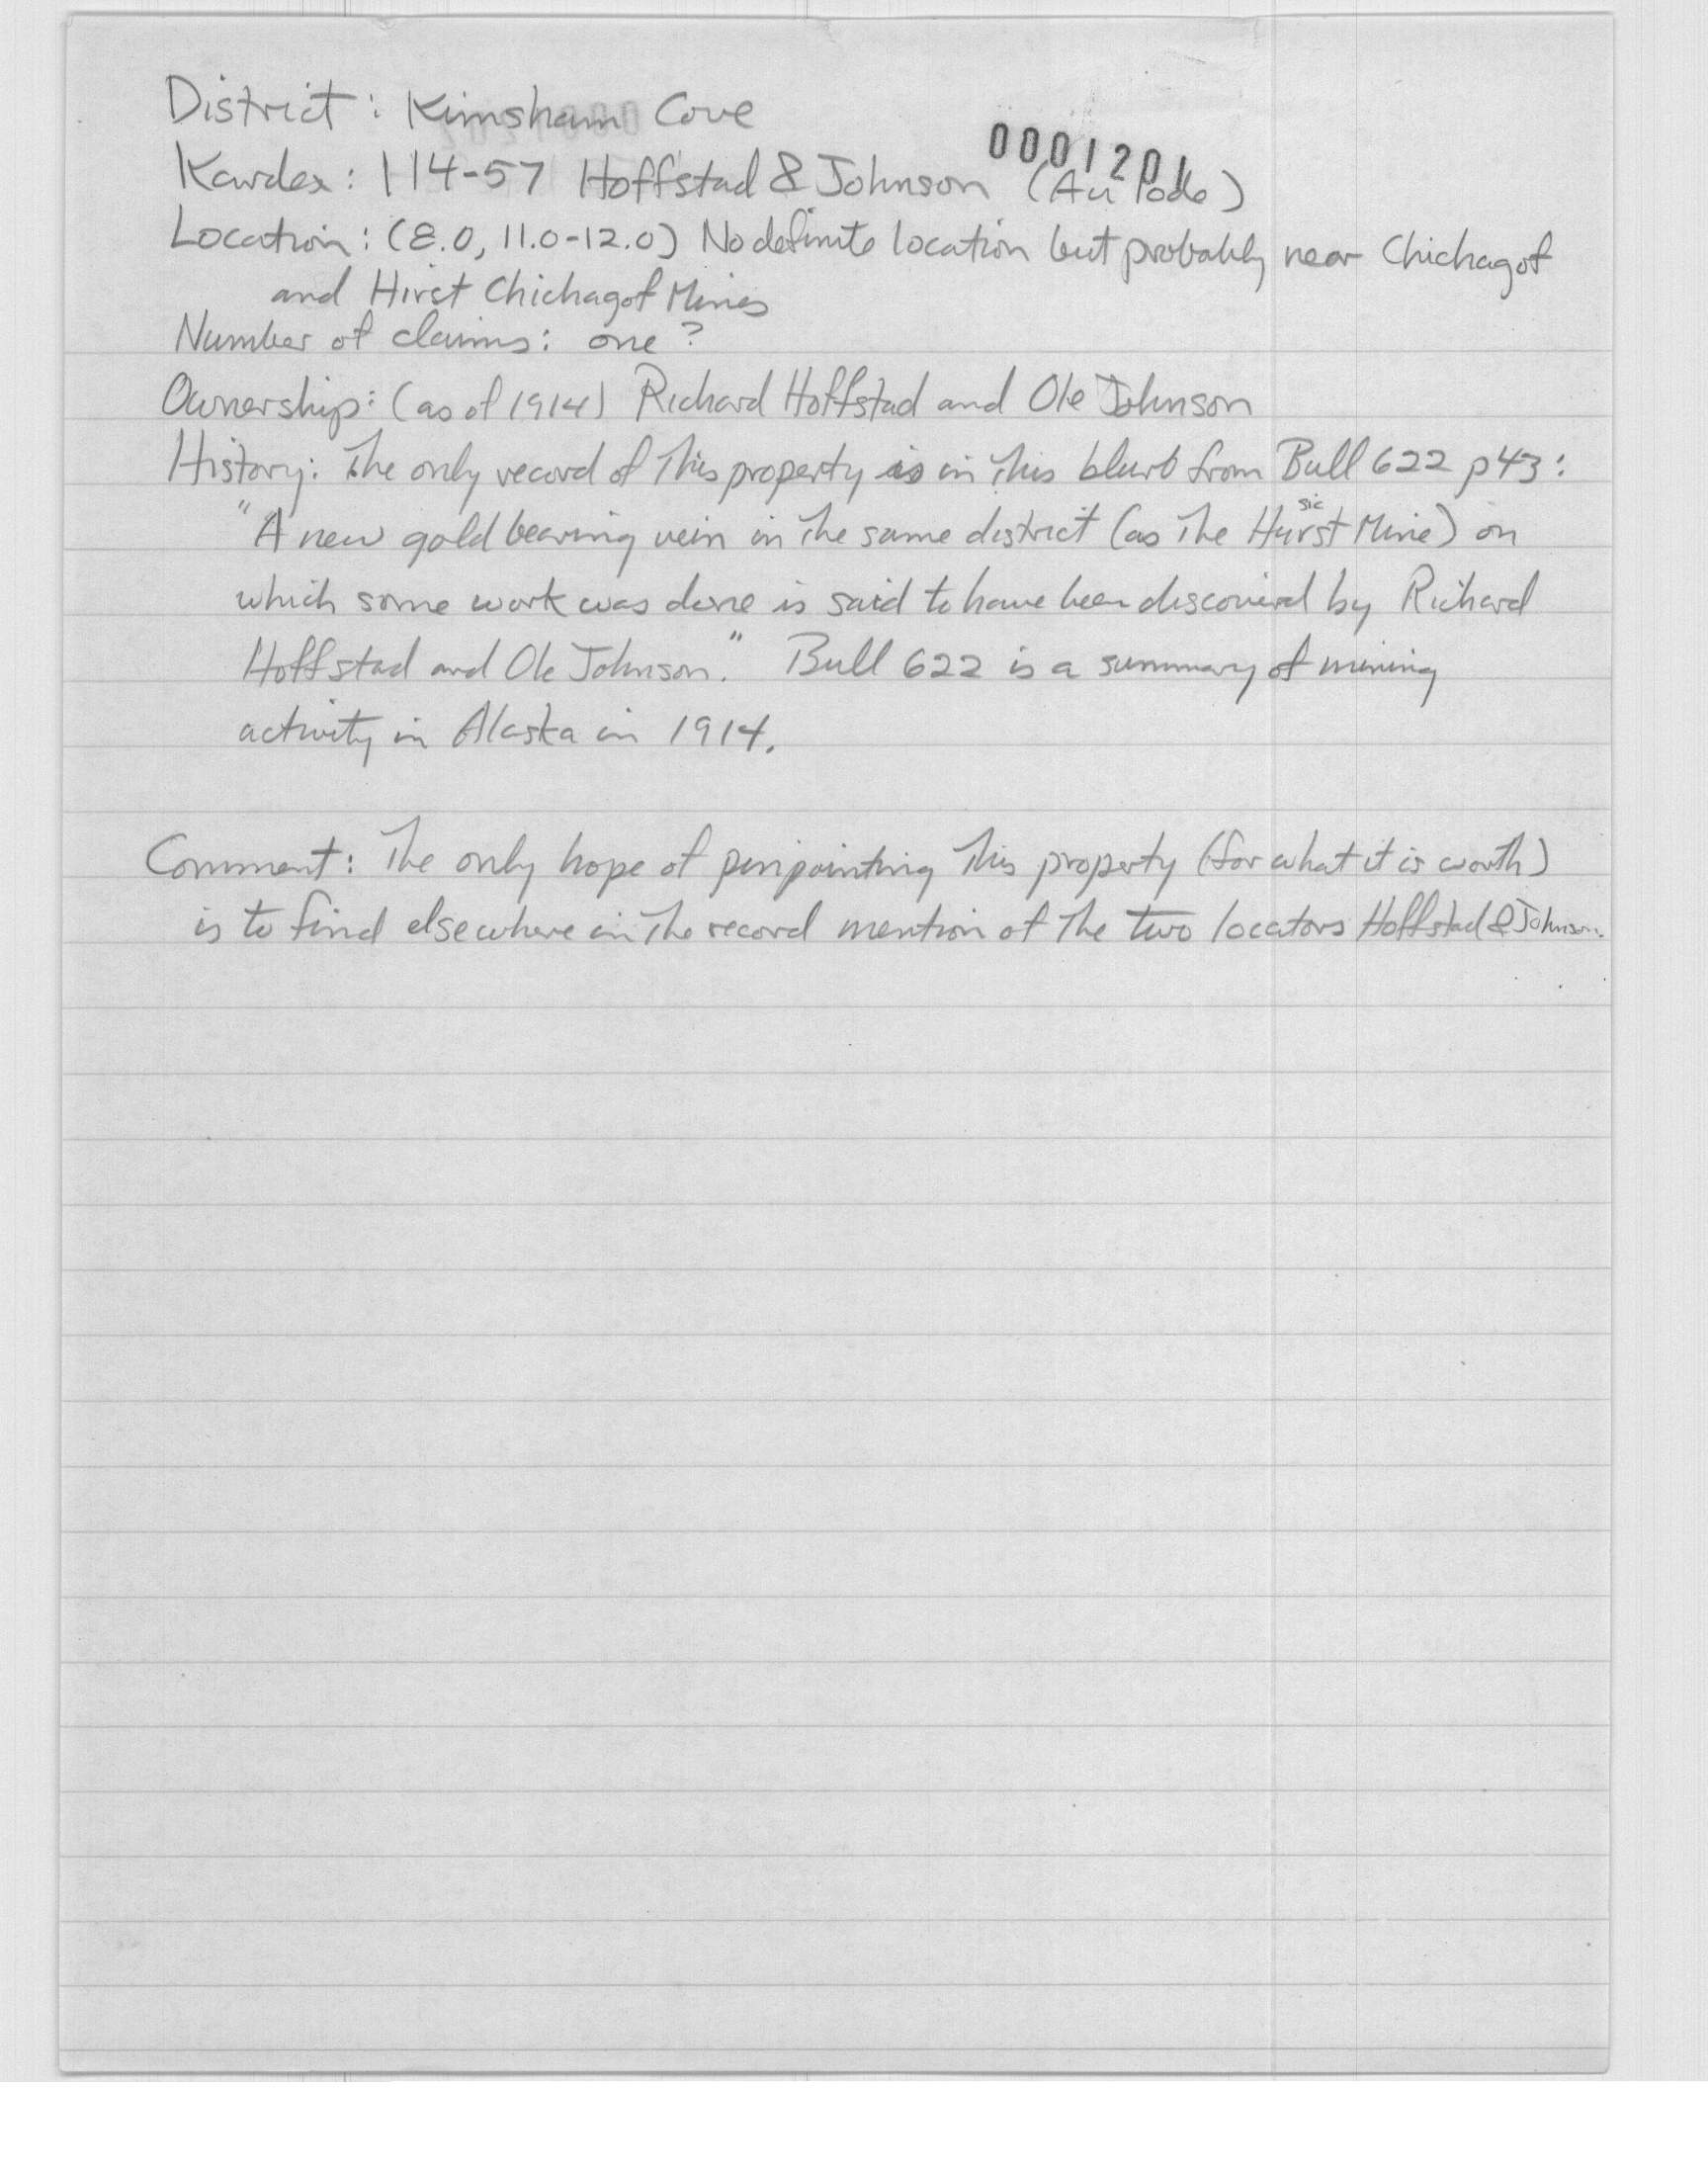 District: Kimsham Cove
0001201
Kardex: 114-57 Hoffstad & Johnson (Au lode)
Location: (8.0, 11.0-12.0) No definite location but probably near Chichagof
and Hirst Chichagof Mines
Number of claims: one?
Ownership: (as of 1914) Richard Hoffstad and Ole Johnson
History: The only record of this property is in this blurb from Bull 622 p43:
sic
"A new gold bearing vein in the same district (as the Hurst Mine) on
which some work was done is said to have been discovered by Richard
Hoffstad and Ole Johnson." Bull 622 is a summary of mining
activity in Alaska in 1914.
Comment: The only hope of pinpointing this property (for what it is worth)
is to find elsewhere in the record mention of the two locators Hoffstad & Johnson.